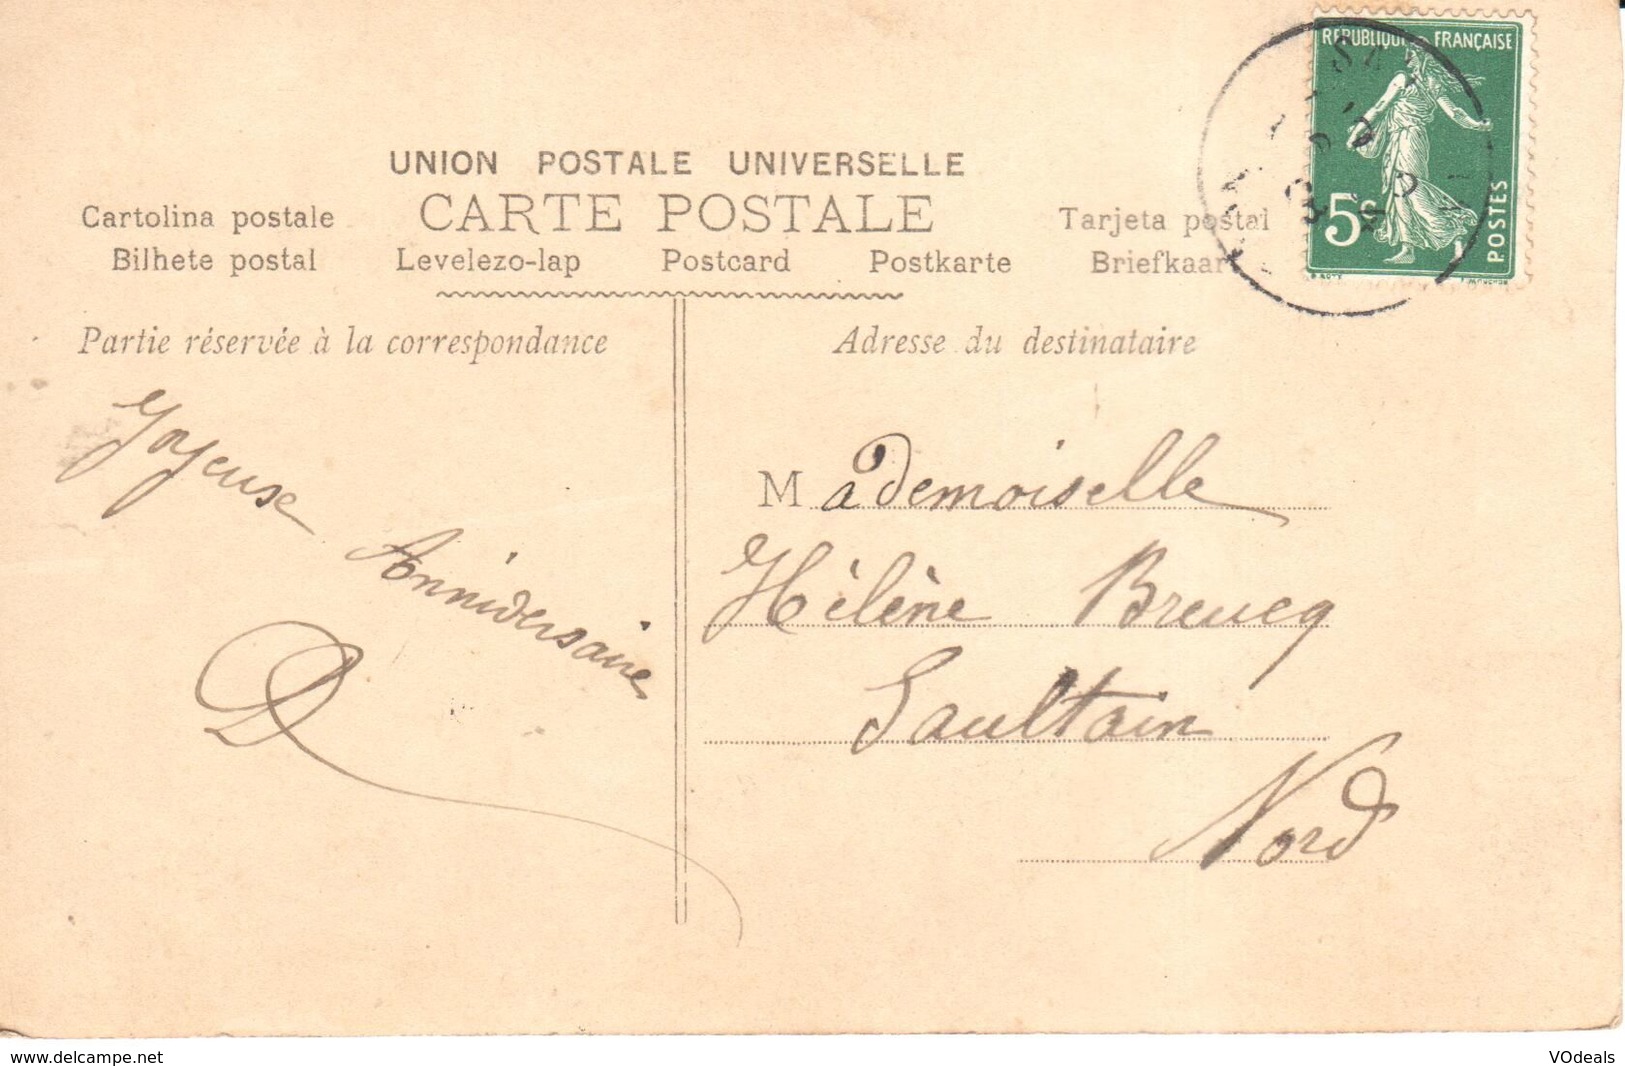 REPUBLIQUE FRANÇAISE
5c
POSTES
UNION POSTALE UNIVERSELLE
CARTE POSTALE
Cartolina postale
Tarjeta postal
Bilhete postal Levelezo-lap Postcard Postkarte Briefkaar
Partie réservée à la correspondance
Joyeuse
Anniversaire
Adresse du destinataire
Mademoiselle
Hélène Breucq
Saultain
Nord
www.delcampe.net
VOdeals